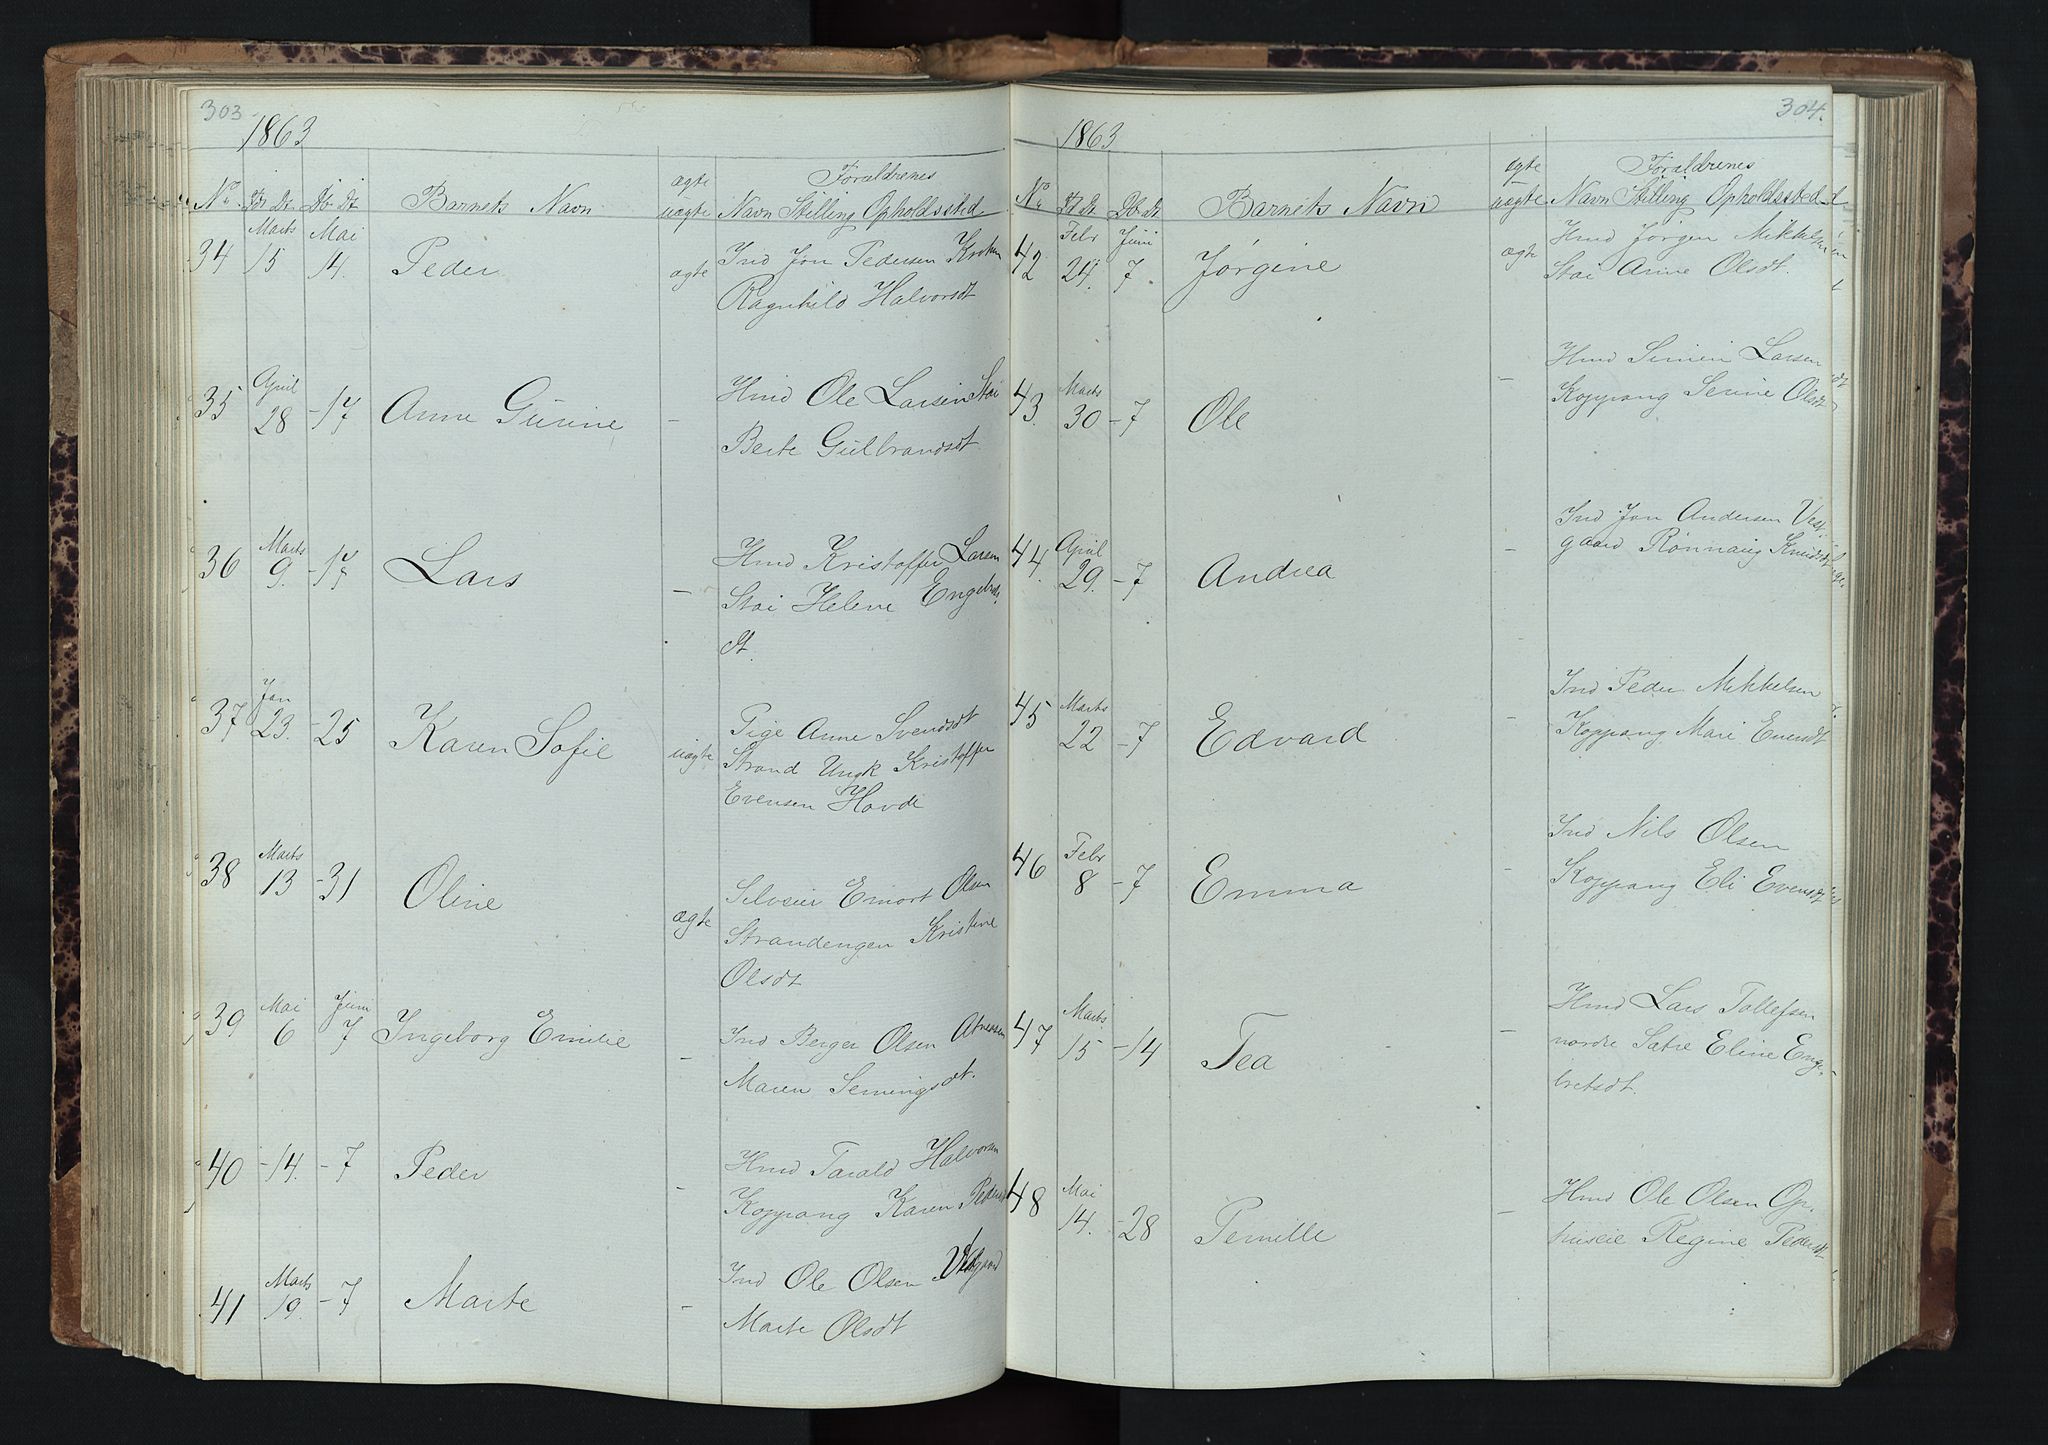 303
1863
No. Fd. Dt. Db. Dt. Barnets Navn ægte uægte Forældrenes
Navn Stilling Opholdssted
34 Marts 15 Mai 14. Peder ægte Ind Jon Pedersen Kroken
Ragnhild Halvorsdt
35 April 28 - 17 Anne Gurine - Hmd Ole Larsen Stai
Berte Gulbrandsdt.
36 Marts 9. - 17 Lars - Hmd Kristoffer Larsen
Stai Helene Engebrets
dt.
37 Jan 23. - 25 Karen Sofie uægte Pige Anne Svendsdt
Strand Ungk Kristoffer
Evensen Hovde
38 Marts 13 - 31 Oline ægte Selveier Emort Olsen
Strandengen Kristine
Olsdt
39 Mai 6 Juni 7 Ingeborg Emilie - Ind Berger Olsen
Maren Semingsdt.
40 - 14. - 7 Peder - Hmd Tarald Halvorsen
Koppang Karen Pedersdt
41 Marts 19. - 7 Marte - Ind Ole Olsen Vestgaard
Marte Olsdt
304.
1863
No. Fd. Dt. Db. Dt. Barnets Navn ægte uægte Forældrenes
Navn Stilling Opholdssted
42 Febr 24. Juni 7 Jørgine ægte Hmd Jørgen Mikkelsen
Stai Anne Olsdt.
43. Marts 30 - 7 Ole - Hmd Simen Larsen
Koppang Serine Olsdt
44. April 29. - 7 Andrea - Ind Jon Andersen Vest-
gaard Rønnaug Knudsdt
45 Marts 22 - 7 Edvard - Ind Peder Mikkelsen
Koppang Mari Evensdt
46 Febr 8 - 7 Emma - Ind Nils Olsen
Koppang Eli Evensdt
47 Marts 15 - 14 Tea - Hmd Lars Tollefsen
nordre Sætre Eline Enge-
bretsdt.
48 Mai 14. - 28 Pernille - Hmd Ole Olsen Op-
huseie Regine Pedersdt